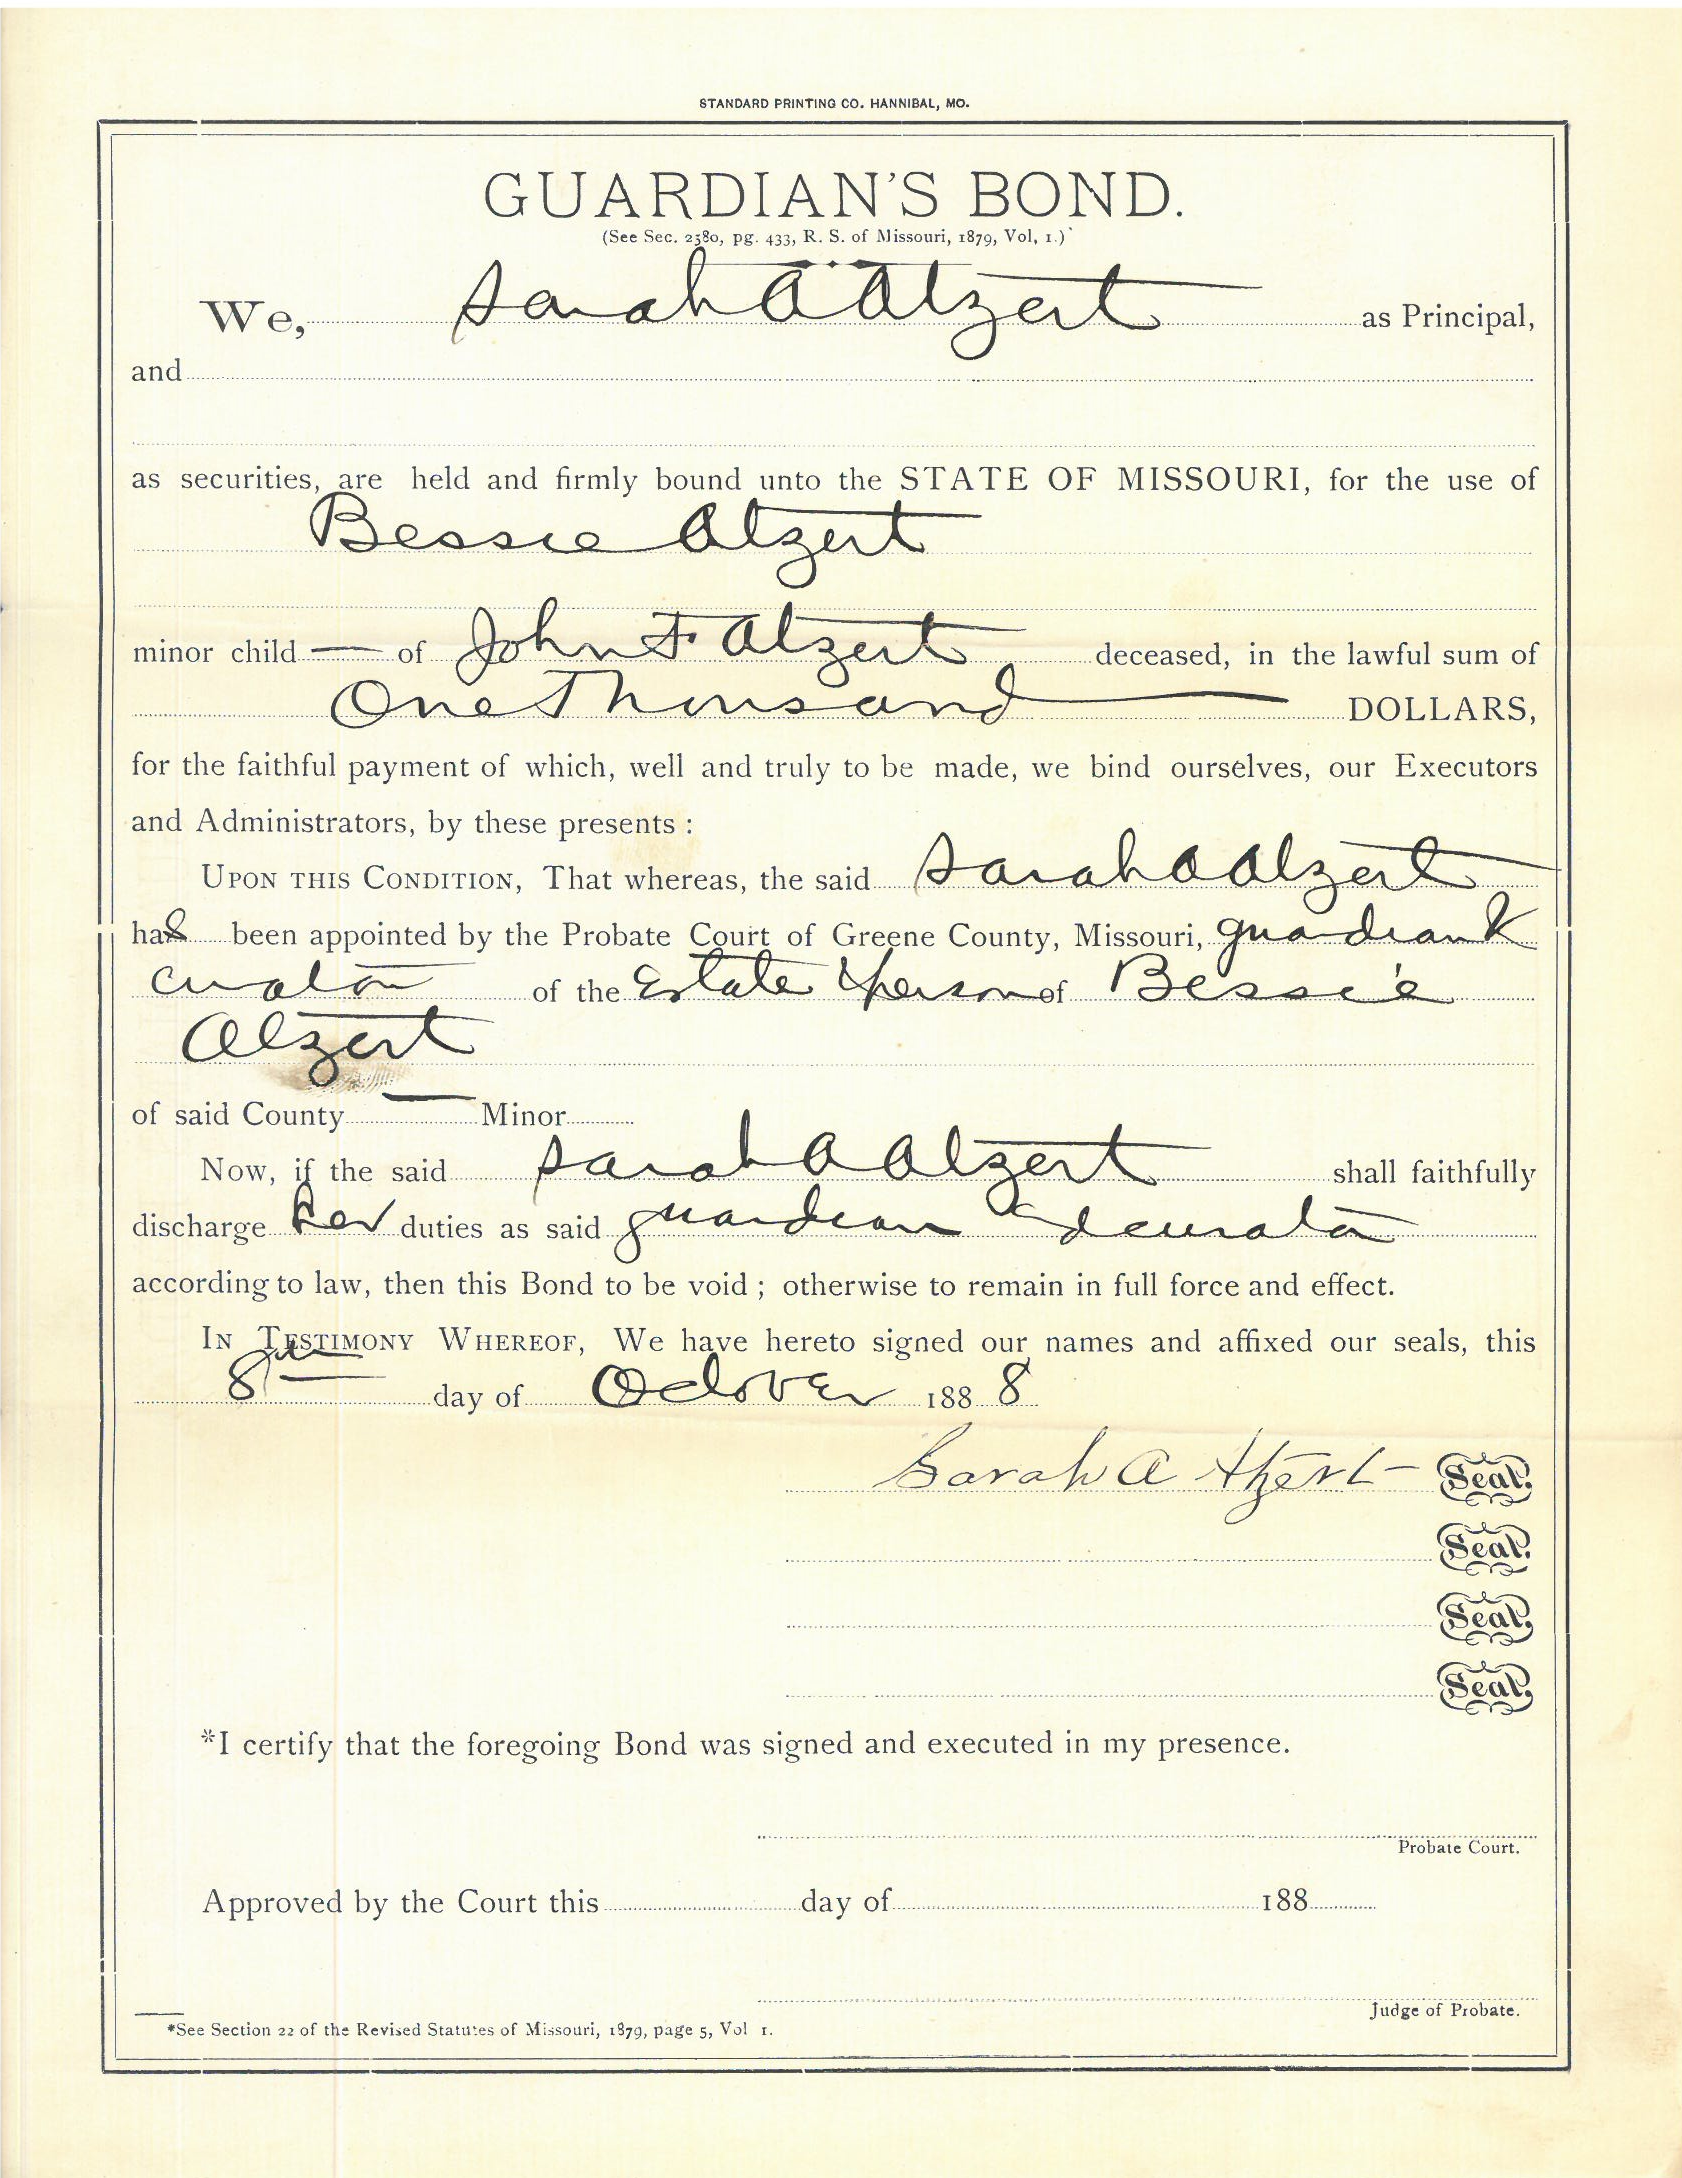 STANDARD PRINTING CO. HANNIBAL, MO.
GUARDIAN'S BOND.
(See Sec. 2580, pg. 433, R. S. of Missouri, 1879, Vol, 1.)
We, Sarah A Atzert as Principal,
and
as securities, are held and firmly bound unto the STATE OF MISSOURI, for the use of
Bessie Atzert
minor child — of John F. Atzert deceased, in the lawful sum of
One Thousand DOLLARS,
for the faithful payment of which, well and truly to be made, we bind ourselves, our Executors
and Administrators, by these presents :
UPON THIS CONDITION, That whereas, the said Sarah A Atzert
has been appointed by the Probate Court of Greene County, Missouri, guardian &
curator of the Estate & person of Bessie
Atzert
of said County — Minor
Now, if the said Sarah A Atzert shall faithfully
discharge her duties as said guardian & curator
according to law, then this Bond to be void ; otherwise to remain in full force and effect.
IN TESTIMONY WHEREOF, We have hereto signed our names and affixed our seals, this
8th day of October 1888
Sarah A Atzert Seal.
Seal.
Seal.
Seal.
*I certify that the foregoing Bond was signed and executed in my presence.
Probate Court.
Approved by the Court this day of 188
Judge of Probate.
*See Section 22 of the Revised Statutes of Missouri, 1879, page 5, Vol 1.